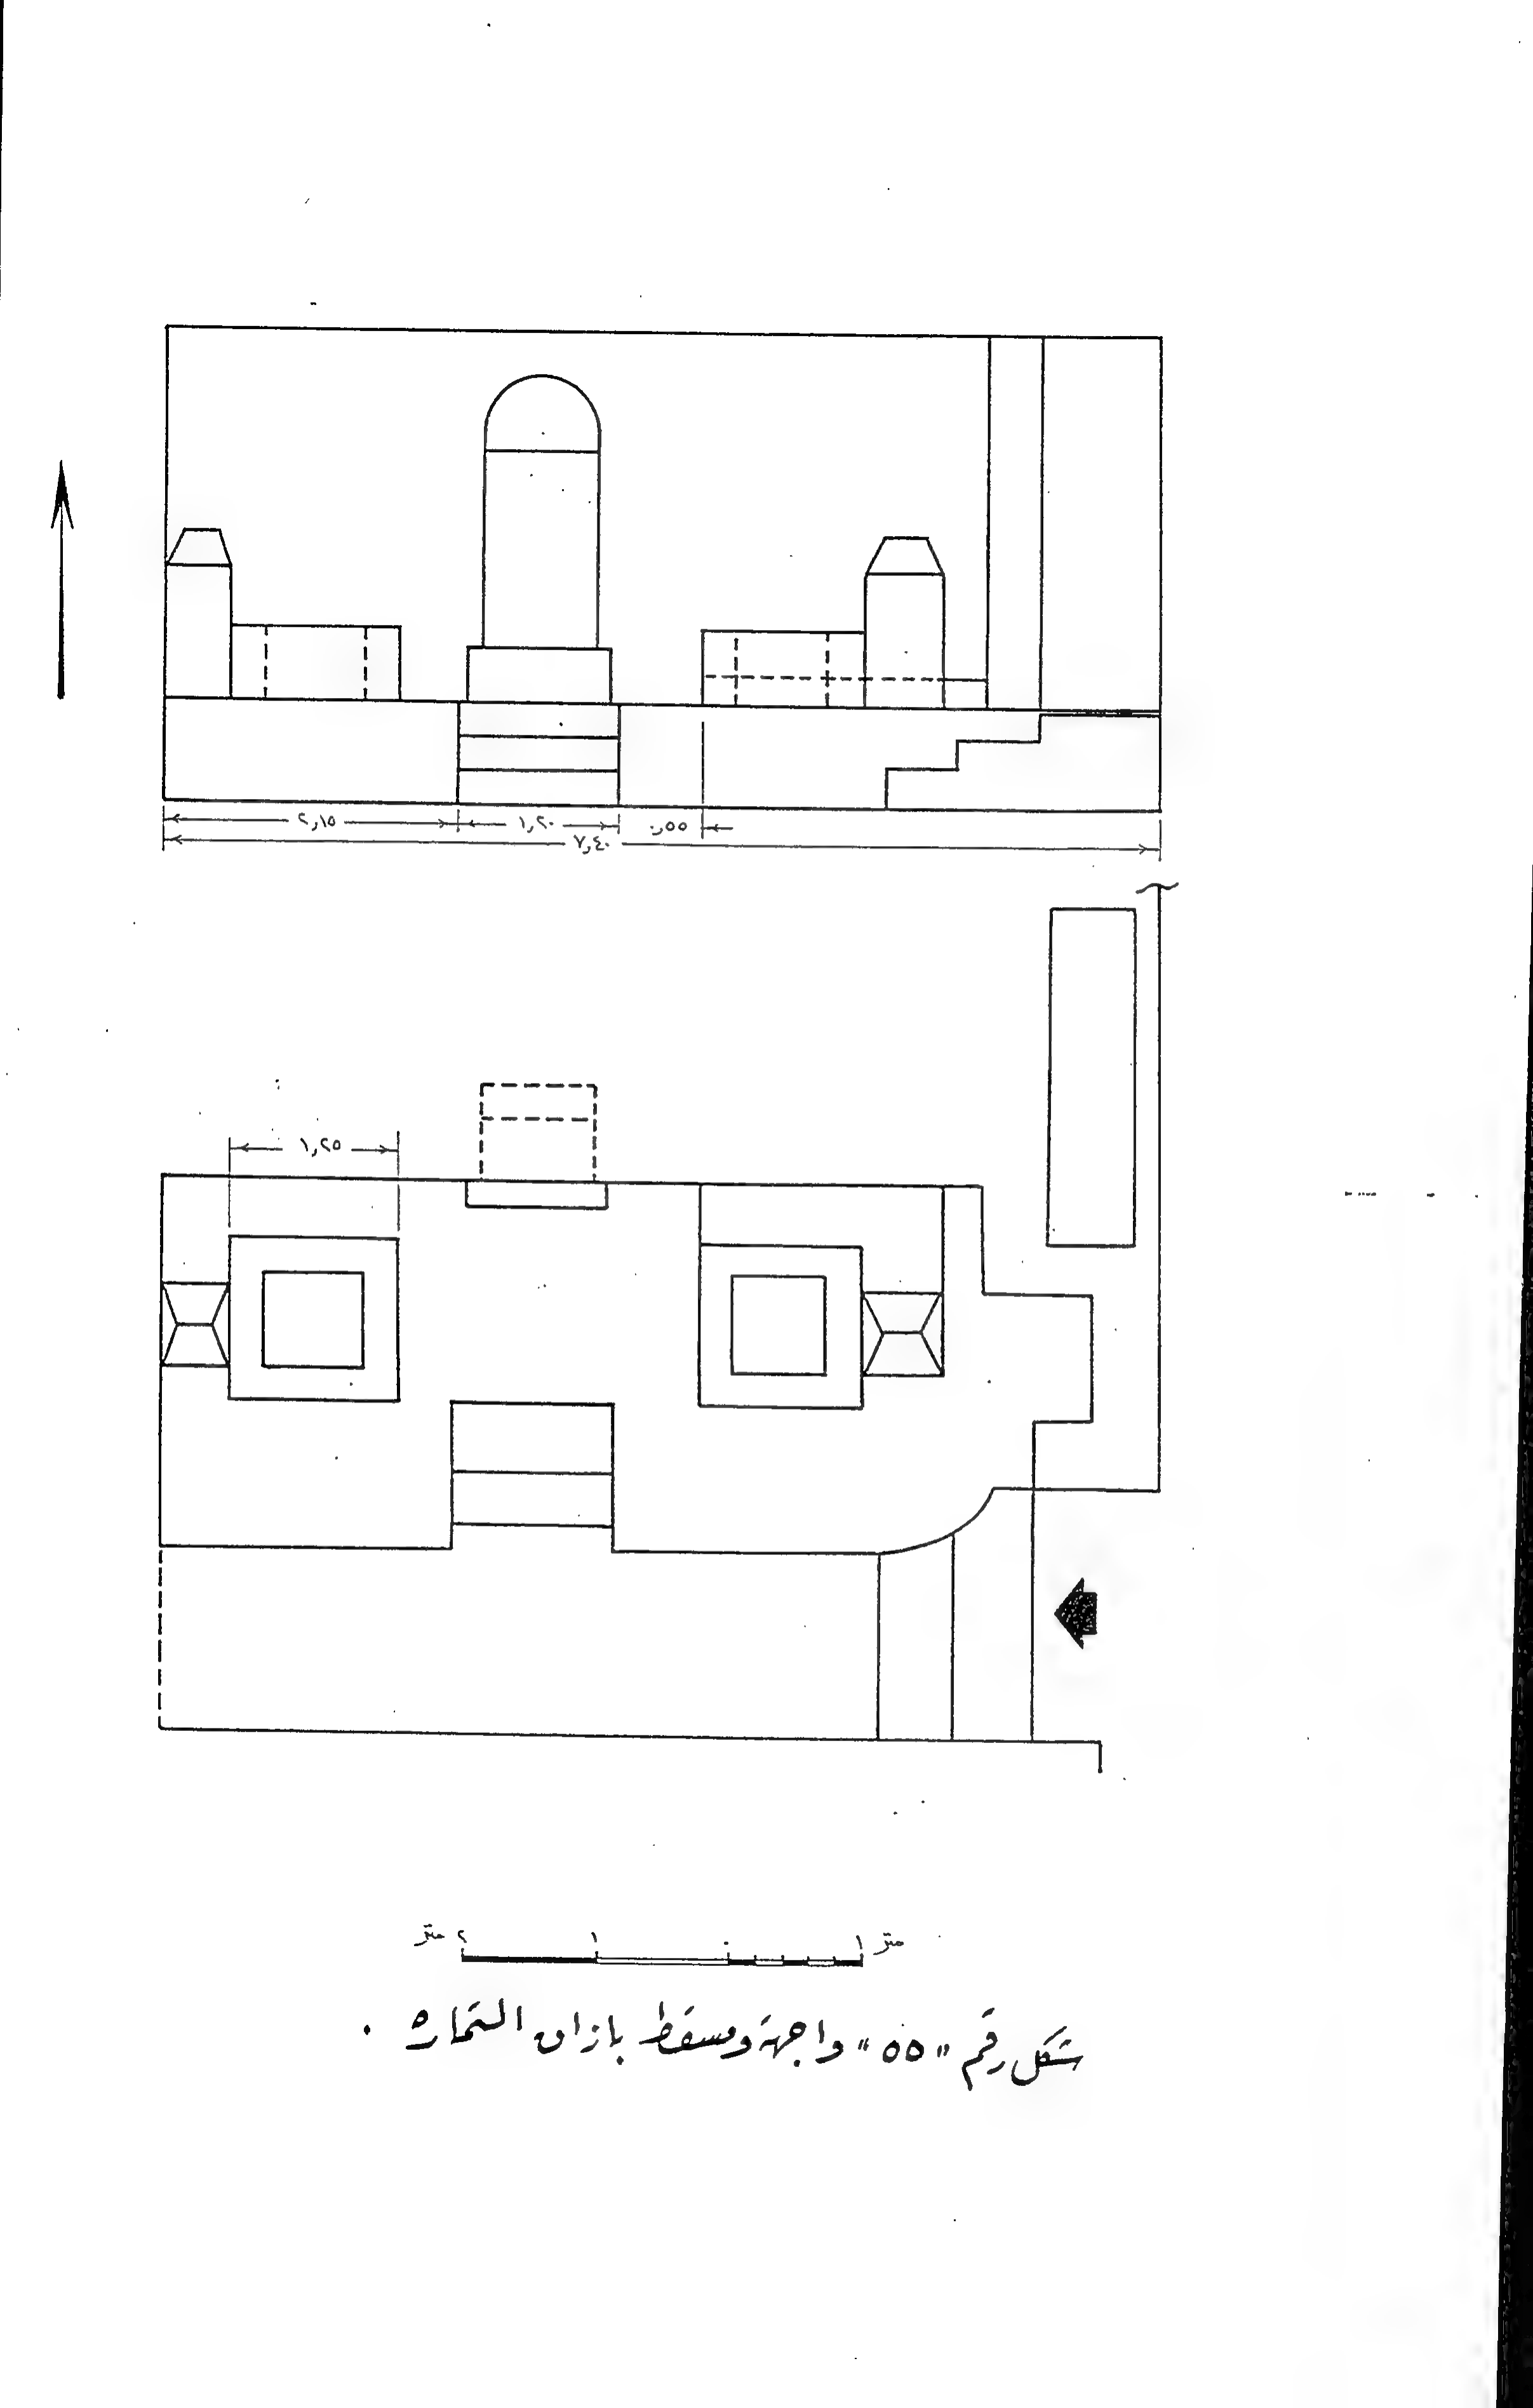 ٢,١٥ ١,٢٠ ٠,٥٥
٧,٤٠
١,٢٥
٢ متر ١ ٠ ١ متر
شكل رقم "٥٥" واجهة ومسقط بازان